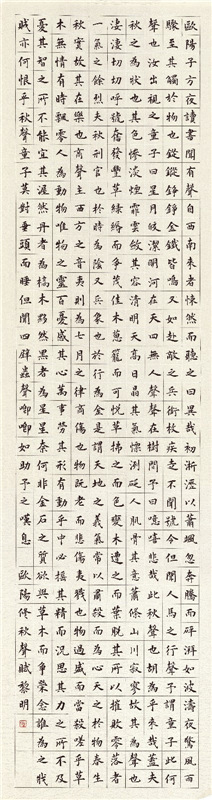 歐陽子方夜讀書聞有聲自西南來者悚然而聽之曰異哉初淅瀝以蕭颯忽奔騰而砰湃如波濤夜驚風雨
驟至其觸於物也鏦鏦錚錚金鐵皆鳴又如赴敵之兵銜枚疾走不聞號令但聞人馬之行聲予謂童子此何
聲也汝出視之童子曰星月皎潔明河在天四無人聲聲在樹間予曰噫嘻悲哉此秋聲也胡為乎來哉蓋夫
秋之為狀也其色慘淡煙霏雲斂其容清明天高日晶其氣慄冽砭人肌骨其意蕭條山川寂寥故其為聲也
淒淒切切呼號奮發豐草綠縟而爭茂佳木蔥蘢而可悅草拂之而色變木遭之而葉脫其所以摧敗零落者
一氣之餘烈夫秋刑官也於時為陰又兵象也於行為金是謂天地之義氣常以肅殺而為心天之於物春生
秋實故其在樂也商聲主西方之音夷則為七月之律商傷也物既老而悲傷夷戮也物過盛而當殺嗟乎草
木無情有時飄零人為動物唯物之靈百憂感其心萬事勞其形有動乎中必搖其精而況思其力之所不及
憂其智之所不能宜其渥然丹者為槁木黟然黑者為星星奈何非金石之質欲與草木而爭榮念誰為之戕
賊亦何恨乎秋聲童子莫對垂頭而睡但聞四壁蟲聲唧唧如助予之嘆息 歐陽修秋聲賦黎明